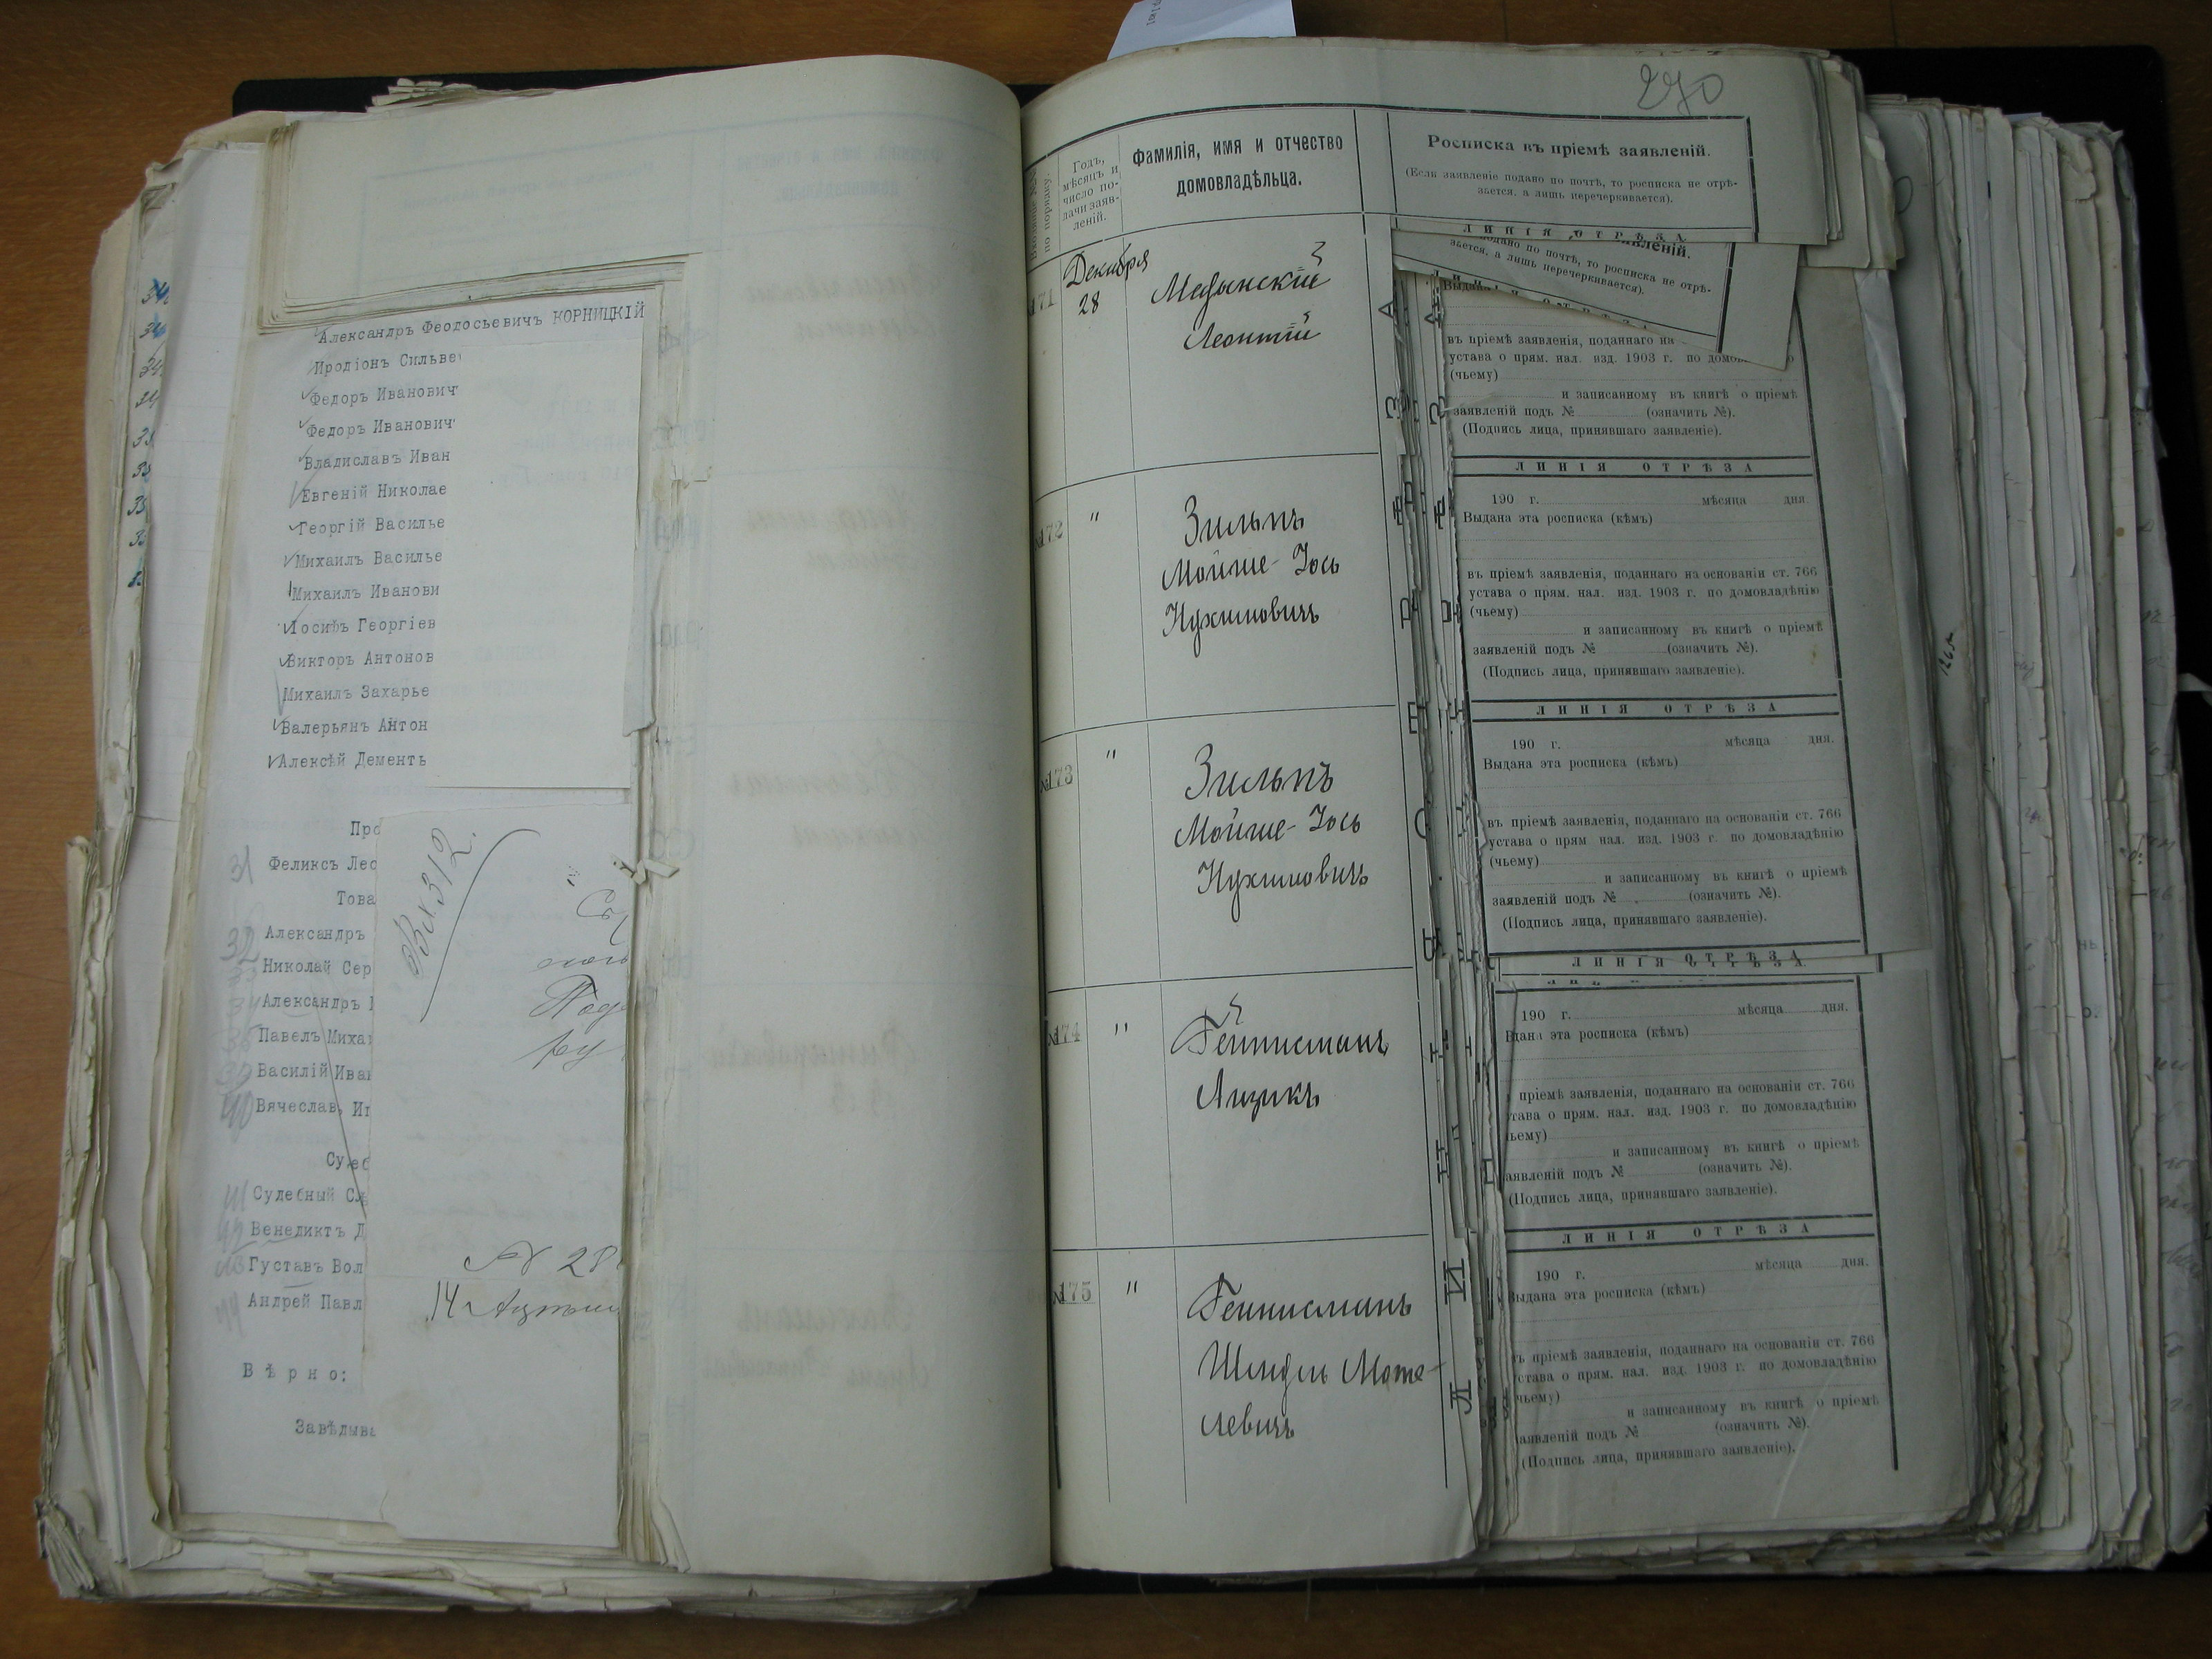 Александръ Феодосьевичъ КОРНИЦКІЙ
Иродіонъ Сильве
Федоръ Иванович
Федоръ Иванович
Владиславъ Иван
Евгеній Николае
Георгій Василье
Михаилъ Василье
Михаилъ Иванови
Іосифъ Георгіев
Викторъ Антонов
Михаилъ Захарье
Валерьянъ Антон
Алексѣй Дементь
Про
31 Феликсъ Лео
Това
32 Александръ
33 Николай Сер
34 Александръ
Павелъ Михаи
Василій Иван
40 Вячеславъ Иг
Судеб
41 Судебный Сл
Венедиктъ Д
Густавъ Вол
44 Андрей Павл
Вѣрно:
Завѣдыва
Вх 312.
№ 28
270
Входящіе №№ по порядку.
Годъ, мѣсяцъ и число подачи заявленій.
Фамилія, имя и отчество
домовладѣльца.
Росписка въ пріемѣ заявленій.
(Если заявленіе подано по почтѣ, то росписка не отрѣ-
зается, а лишь перечеркивается).
ЛИНІЯ ОТРѢЗА
171 Декабря 28
Леонтій
№172 " Зильпъ
Мойше-Іось
Нухимовичъ
№173 " Зильпъ
Мойше-Іось
Нухимовичъ
№174 " Гейнисманъ
Аизикъ
№175 " Геннисманъ
Шмуль Моте-
левичъ
подано по почтѣ, то росписка не отрѣ-
зается, а лишь перечеркивается).
въ пріемѣ заявленія, поданнаго на
устава о прям. нал. изд. 1903 г. по
(чьему)
и записанному въ книгѣ о пріемѣ
заявленій подъ № (означить №).
(Подпись лица, принявшаго заявленіе).
ЛИНІЯ ОТРѢЗА
190 г. мѣсяца дня
Выдана эта росписка (кѣмъ)
въ пріемѣ заявленія, поданнаго на основаніи ст. 766
устава о прям. нал. изд. 1903 г. по домовладѣнію
(чьему)
и записанному въ книгѣ о пріемѣ
заявленій подъ № (означить №).
(Подпись лица, принявшаго заявленіе).
ЛИНІЯ ОТРѢЗА
190 г. мѣсяца дня.
Выдана эта росписка (кѣмъ)
въ пріемѣ заявленія, поданнаго на основаніи ст. 766
устава о прям нал. изд. 1903 г. по домовладѣнію
(чьему)
и записанному въ книгѣ о пріемѣ
заявленій подъ № (означить №).
(Подпись лица, принявшаго заявленіе).
ЛИНІЯ ОТРѢЗА
190 г. мѣсяца дня.
дана эта росписка (кѣмъ)
пріемѣ заявленія, поданнаго на основаніи ст. 766
става о прям. нал. изд. 1903 г. по домовладѣнію
ьему)
и записанному въ книгѣ о пріемѣ
аявленій подъ № (означить №).
(Подпись лица, принявшаго заявленіе).
ЛИНІЯ ОТРѢЗА
190 г. мѣсяца дня.
Выдана эта росписка (кѣмъ)
въ пріемѣ заявленія, поданнаго на основаніи ст. 766
устава о прям. нал. изд. 1903 г. по домовладѣнію
чьему)
и записанному въ книгѣ о пріемѣ
аявленій подъ № (означить №).
(Подпись лица, принявшаго заявленіе).